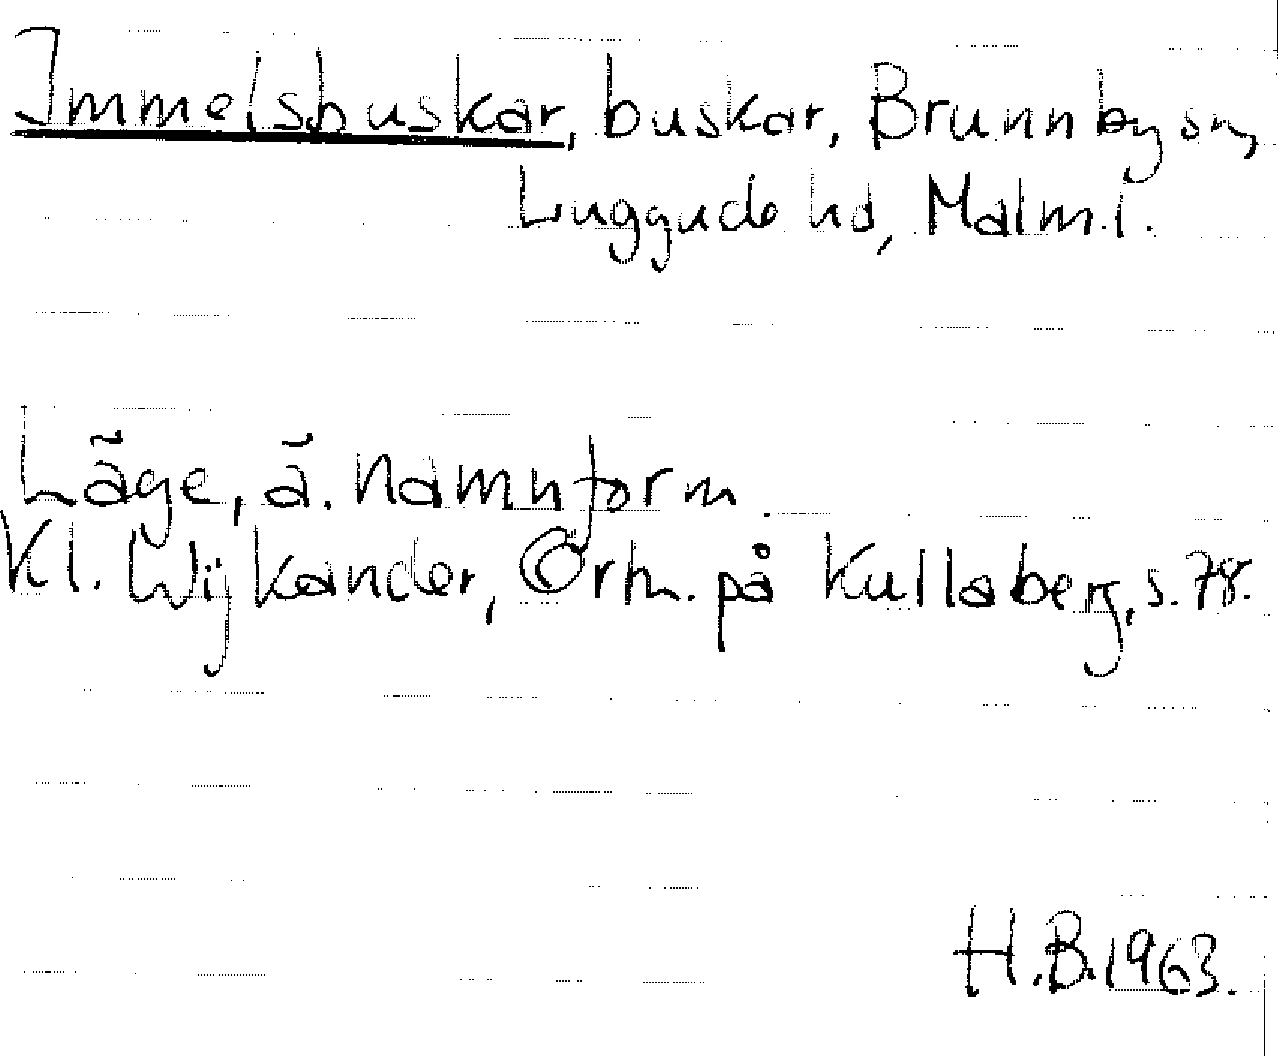 Immelsbuskar, buskar, Brunnby sn,
Luggude hd, Malm.l.
Läge, ä. namnform.
Kl. Wijkander, Ortn. på Kullaberg, s. 78.
H.B. 1963.